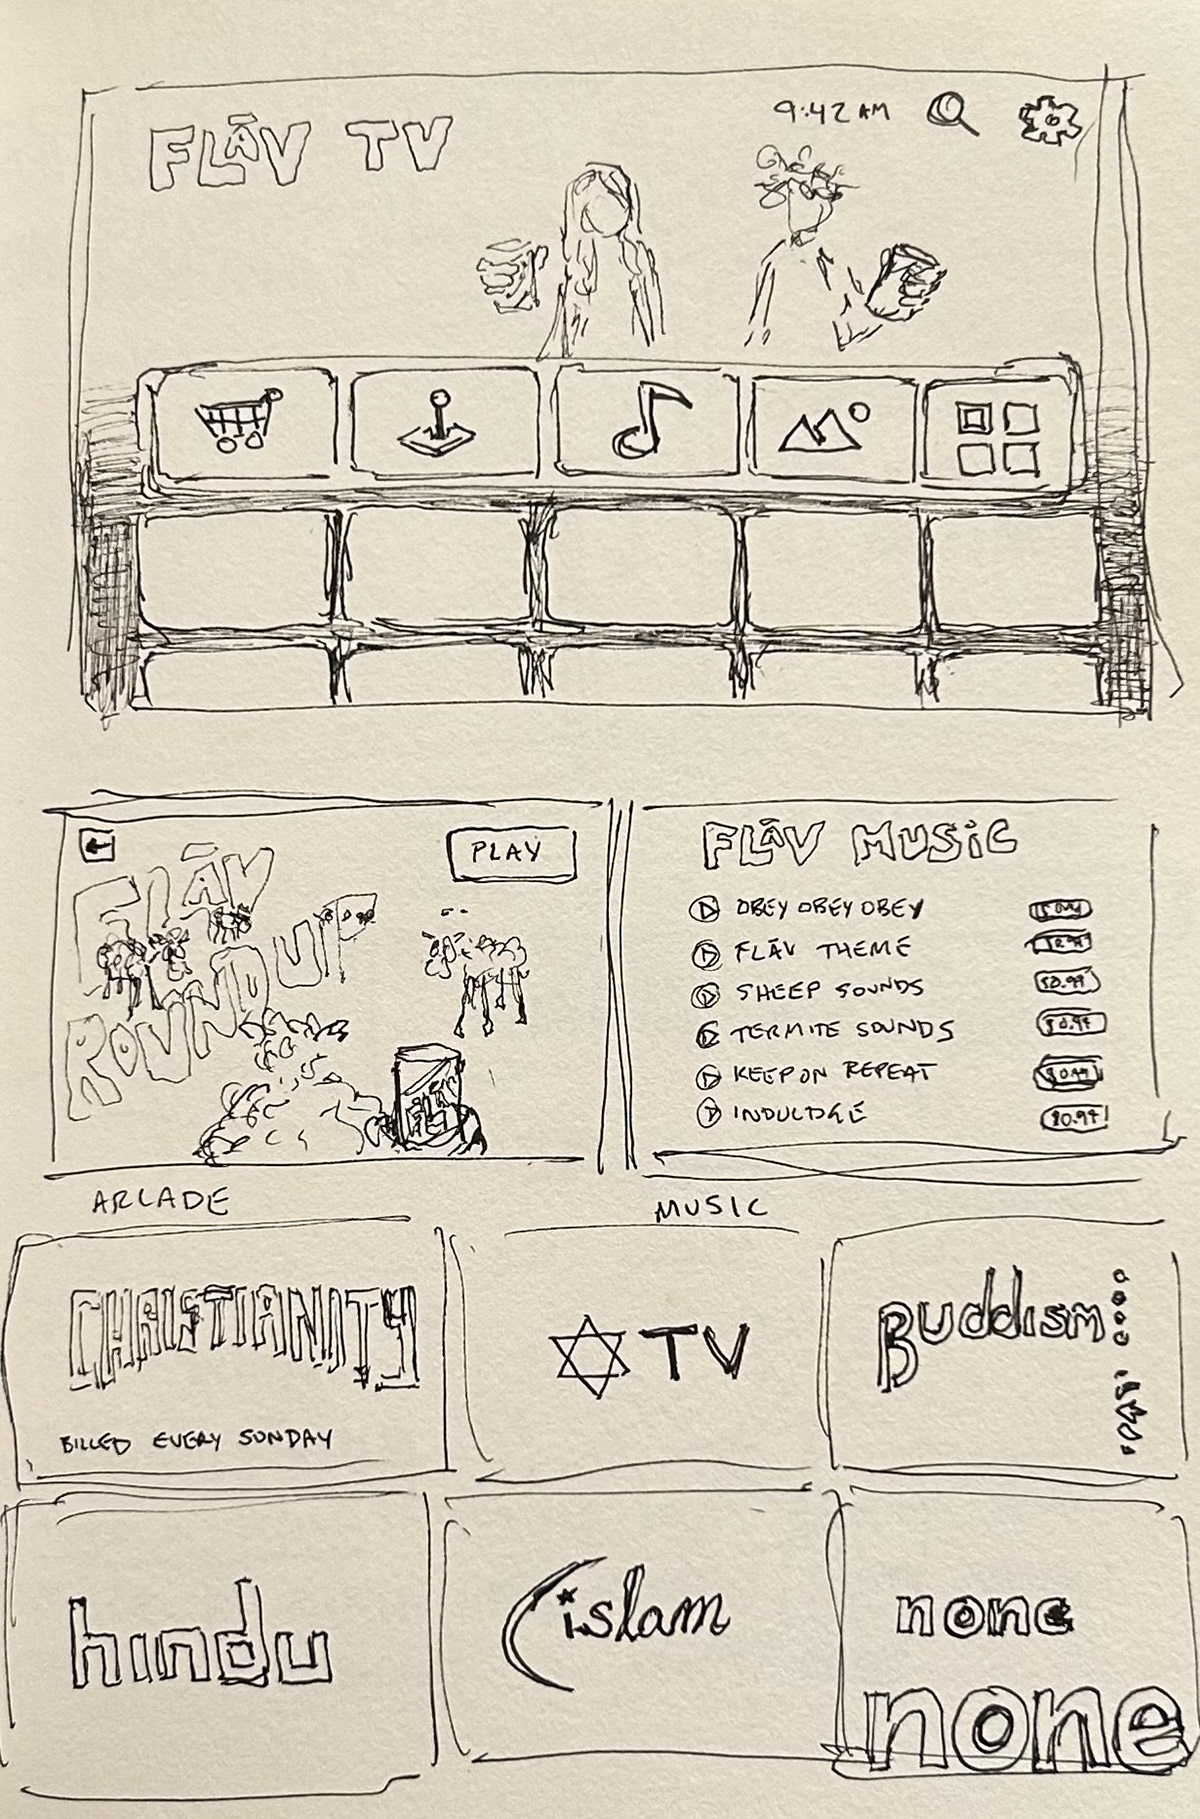 FLĀV TV
9:42 AM
PLAY
FLĀV
ROUND UP
FLĀV
ARCADE
FLĀV MUSIC
OBEY OBEY OBEY
FLĀV THEME
SHEEP SOUNDS $0.99
TERMITE SOUNDS $0.99
KEEP ON REPEAT $0.99
INDULDGE $0.99
MUSIC
CHRISTIANITY
BILLED EVERY SUNDAY
TV
Buddism
hindu
islam
none
none